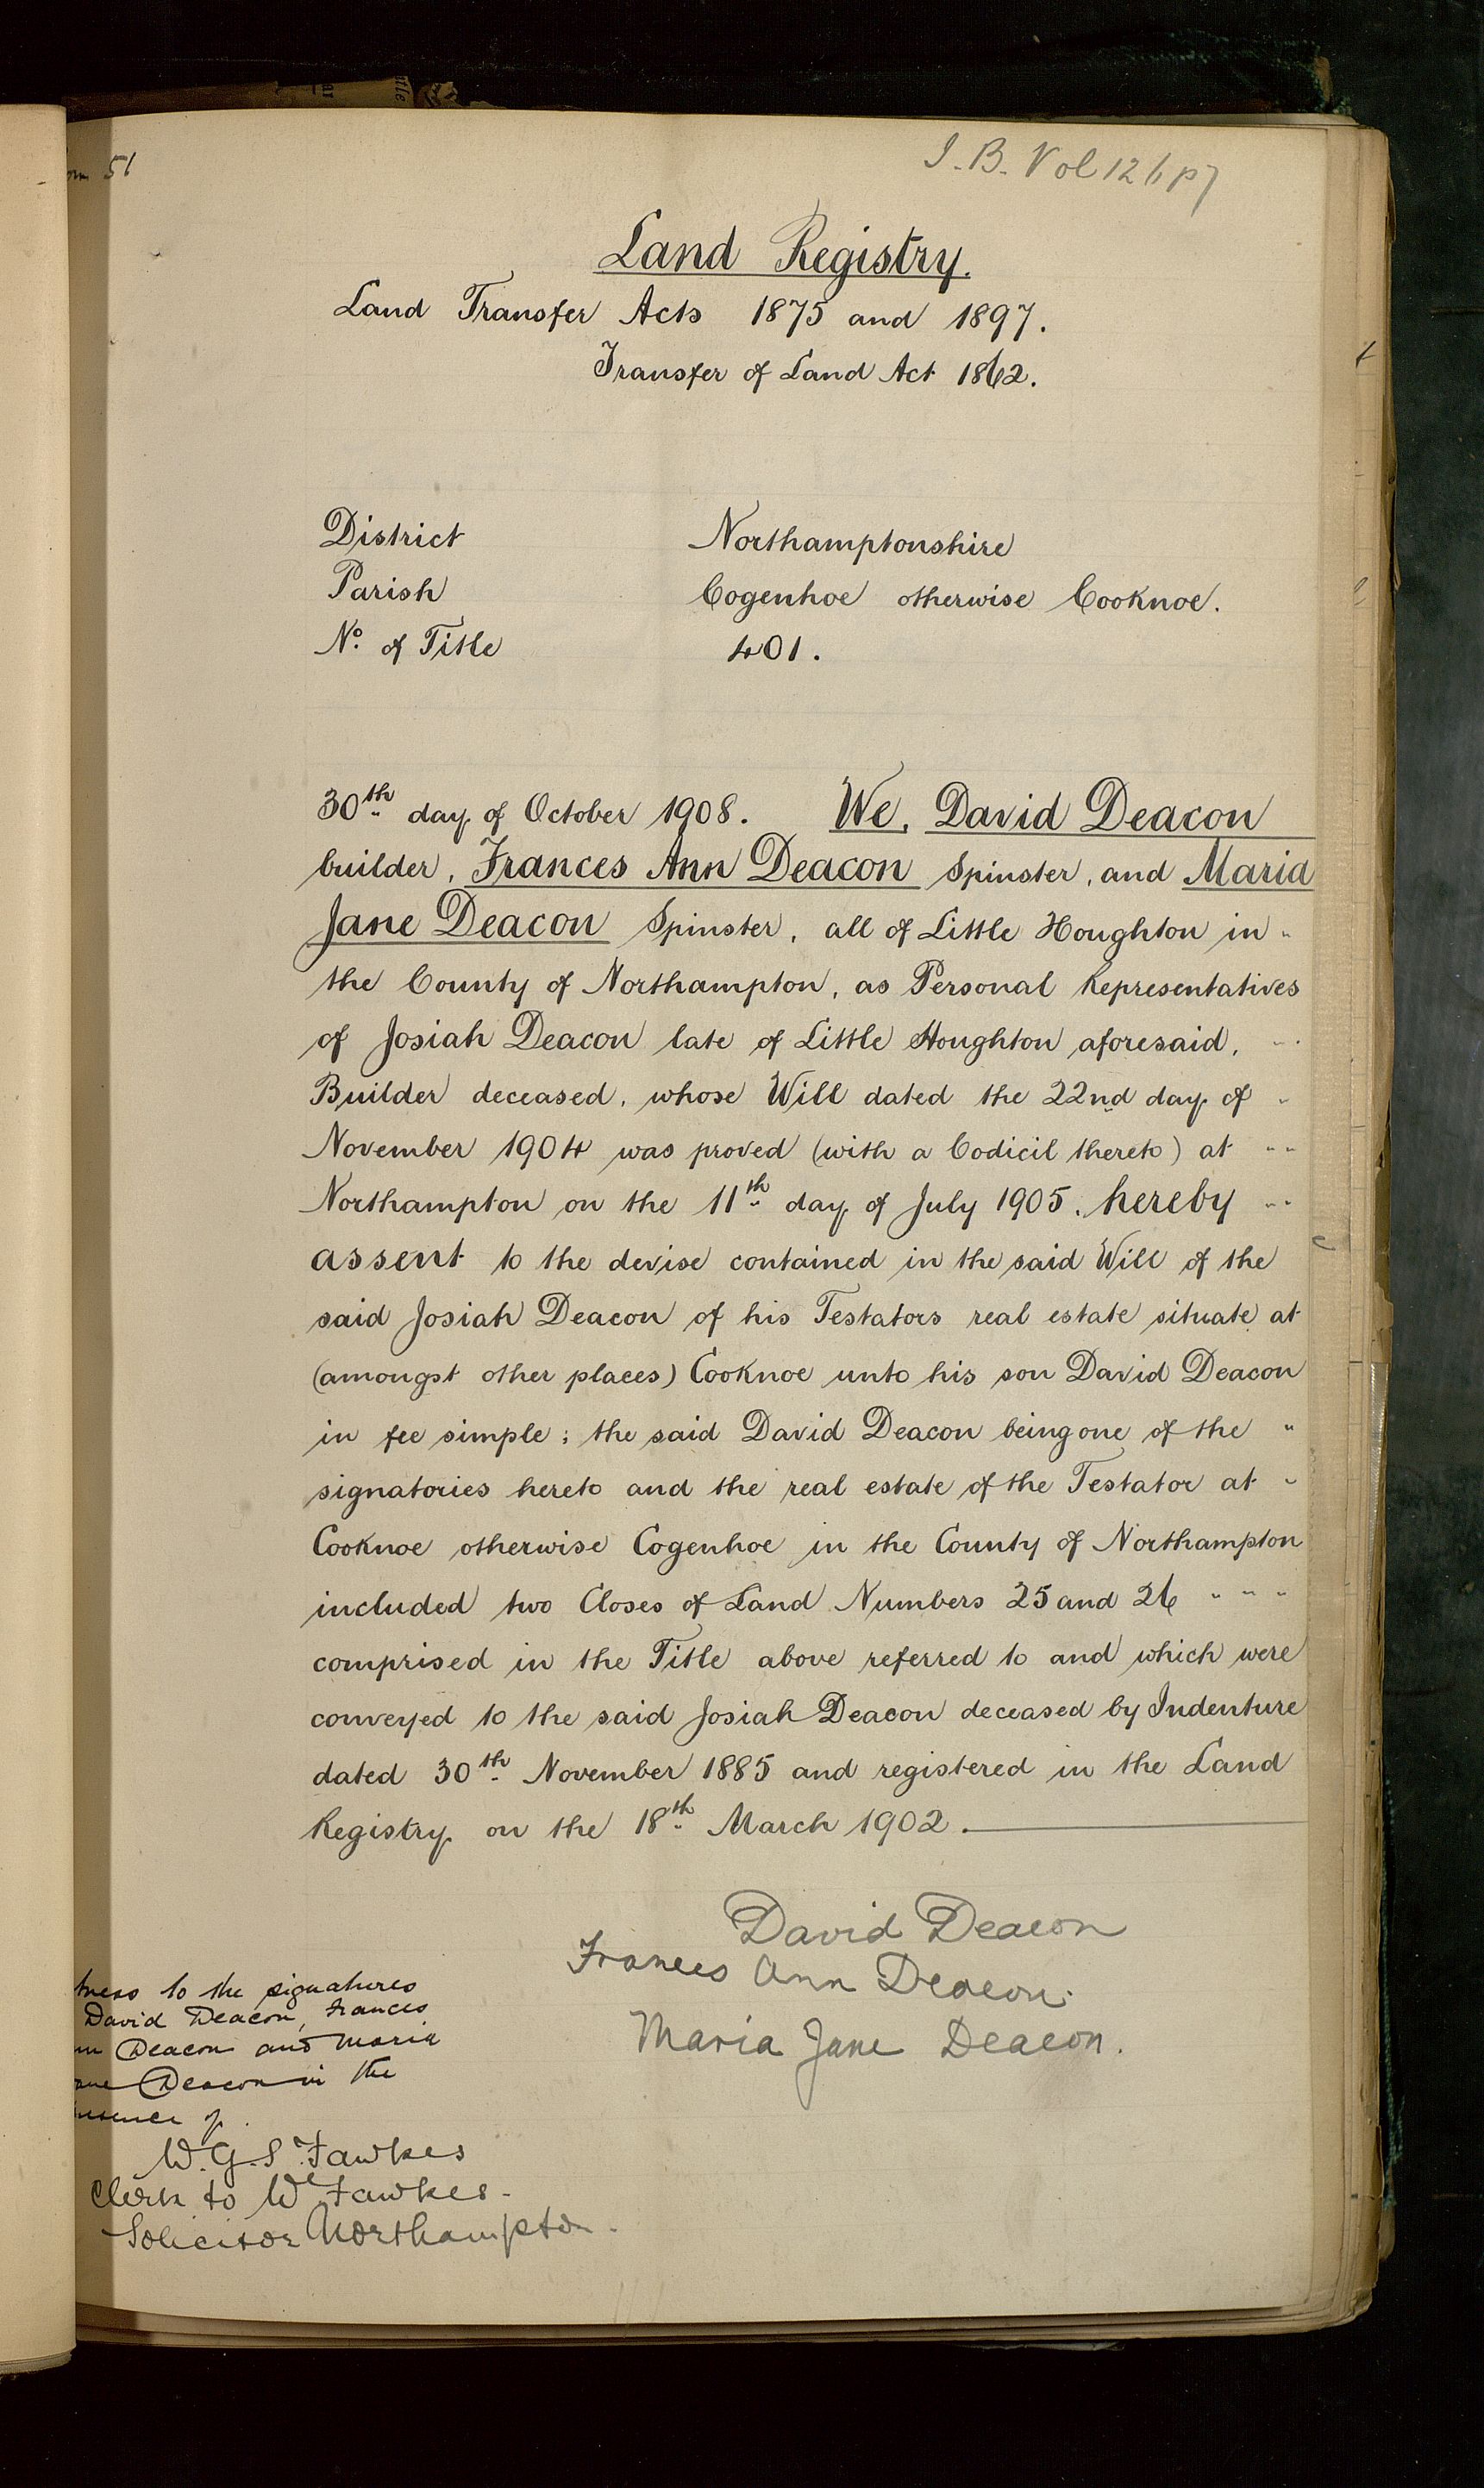 51
I. B. Vol 126 p7
Land Registry.
Land Transfer Acts 1875 and 1897.
Transfer of Land Act 1862.
District Northamptonshire
Parish Cogenhoe otherwise Cooknoe.
No. of Title 401.
30th day of October 1908. We, David Deacon
builder, Frances Ann Deacon Spinster, and Maria
Jane Deacon Spinster, all of Little Houghton in
the County of Northampton, as Personal Representatives
of Josiah Deacon late of Little Houghton aforesaid,
Builder deceased, whose Will dated the 22nd day of
November 1904 was proved (with a Codicil thereto) at
Northampton on the 11th day of July 1905, hereby
assent to the devise contained in the said Will of the
said Josiah Deacon of his Testators real estate situate at
(amongst other places) Cooknoe unto his son David Deacon
in fee simple; the said David Deacon being one of the
signatories hereto and the real estate of the Testator at
Cooknoe otherwise Cogenhoe in the County of Northampton
included two Closes of Land Numbers 25 and 26
comprised in the Title above referred to and which were
conveyed to the said Josiah Deacon deceased by Indenture
dated 30th November 1885 and registered in the Land
Registry on the 18th March 1902.
David Deacon
Frances Ann Deacon.
Maria Jane Deacon.
to the signatures
David Deacon, Frances
Deacon and Maria
Deacon in the
of
W. G. S. Fawkes
Clerk to Wm Fawkes
Solicitor Northampton.